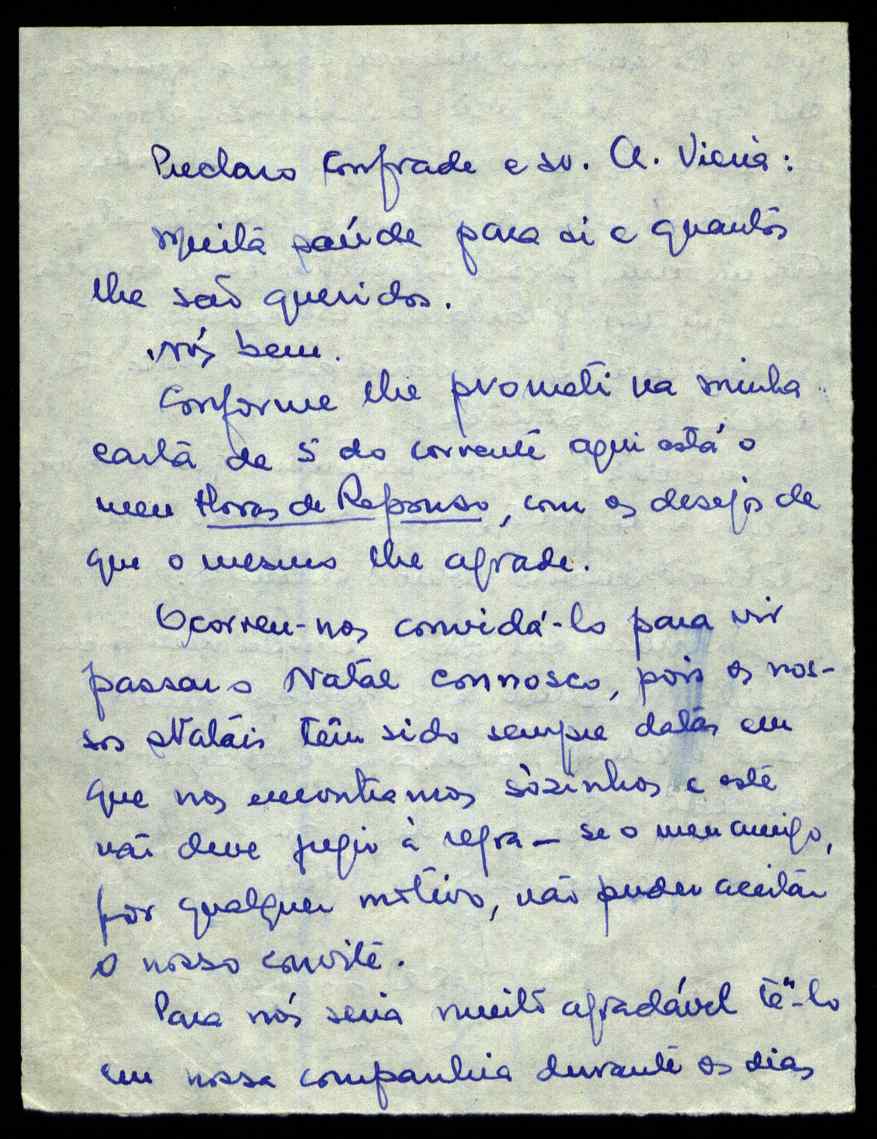 Preclaro Confrade e sr. A. Vieira:
Muita saúde para si e quantos
lhe são queridos.
Nós bem.
Conforme lhe prometi na minha
carta de 5 do corrente aqui está o
meu Horas de Repouso, com os desejos de
que o mesmo lhe agrade.
Ocorreu-nos convidá-lo para vir
passar o Natal connosco, pois os nos-
sos Natais têm sido sempre datas em
que nos encontramos sòzinhos e este
não deve fugir à regra — se o meu amigo,
por qualquer motivo, não puder aceitar
o nosso convite.
Para nós seria muito agradável tê-lo
em nossa companhia durante os dias